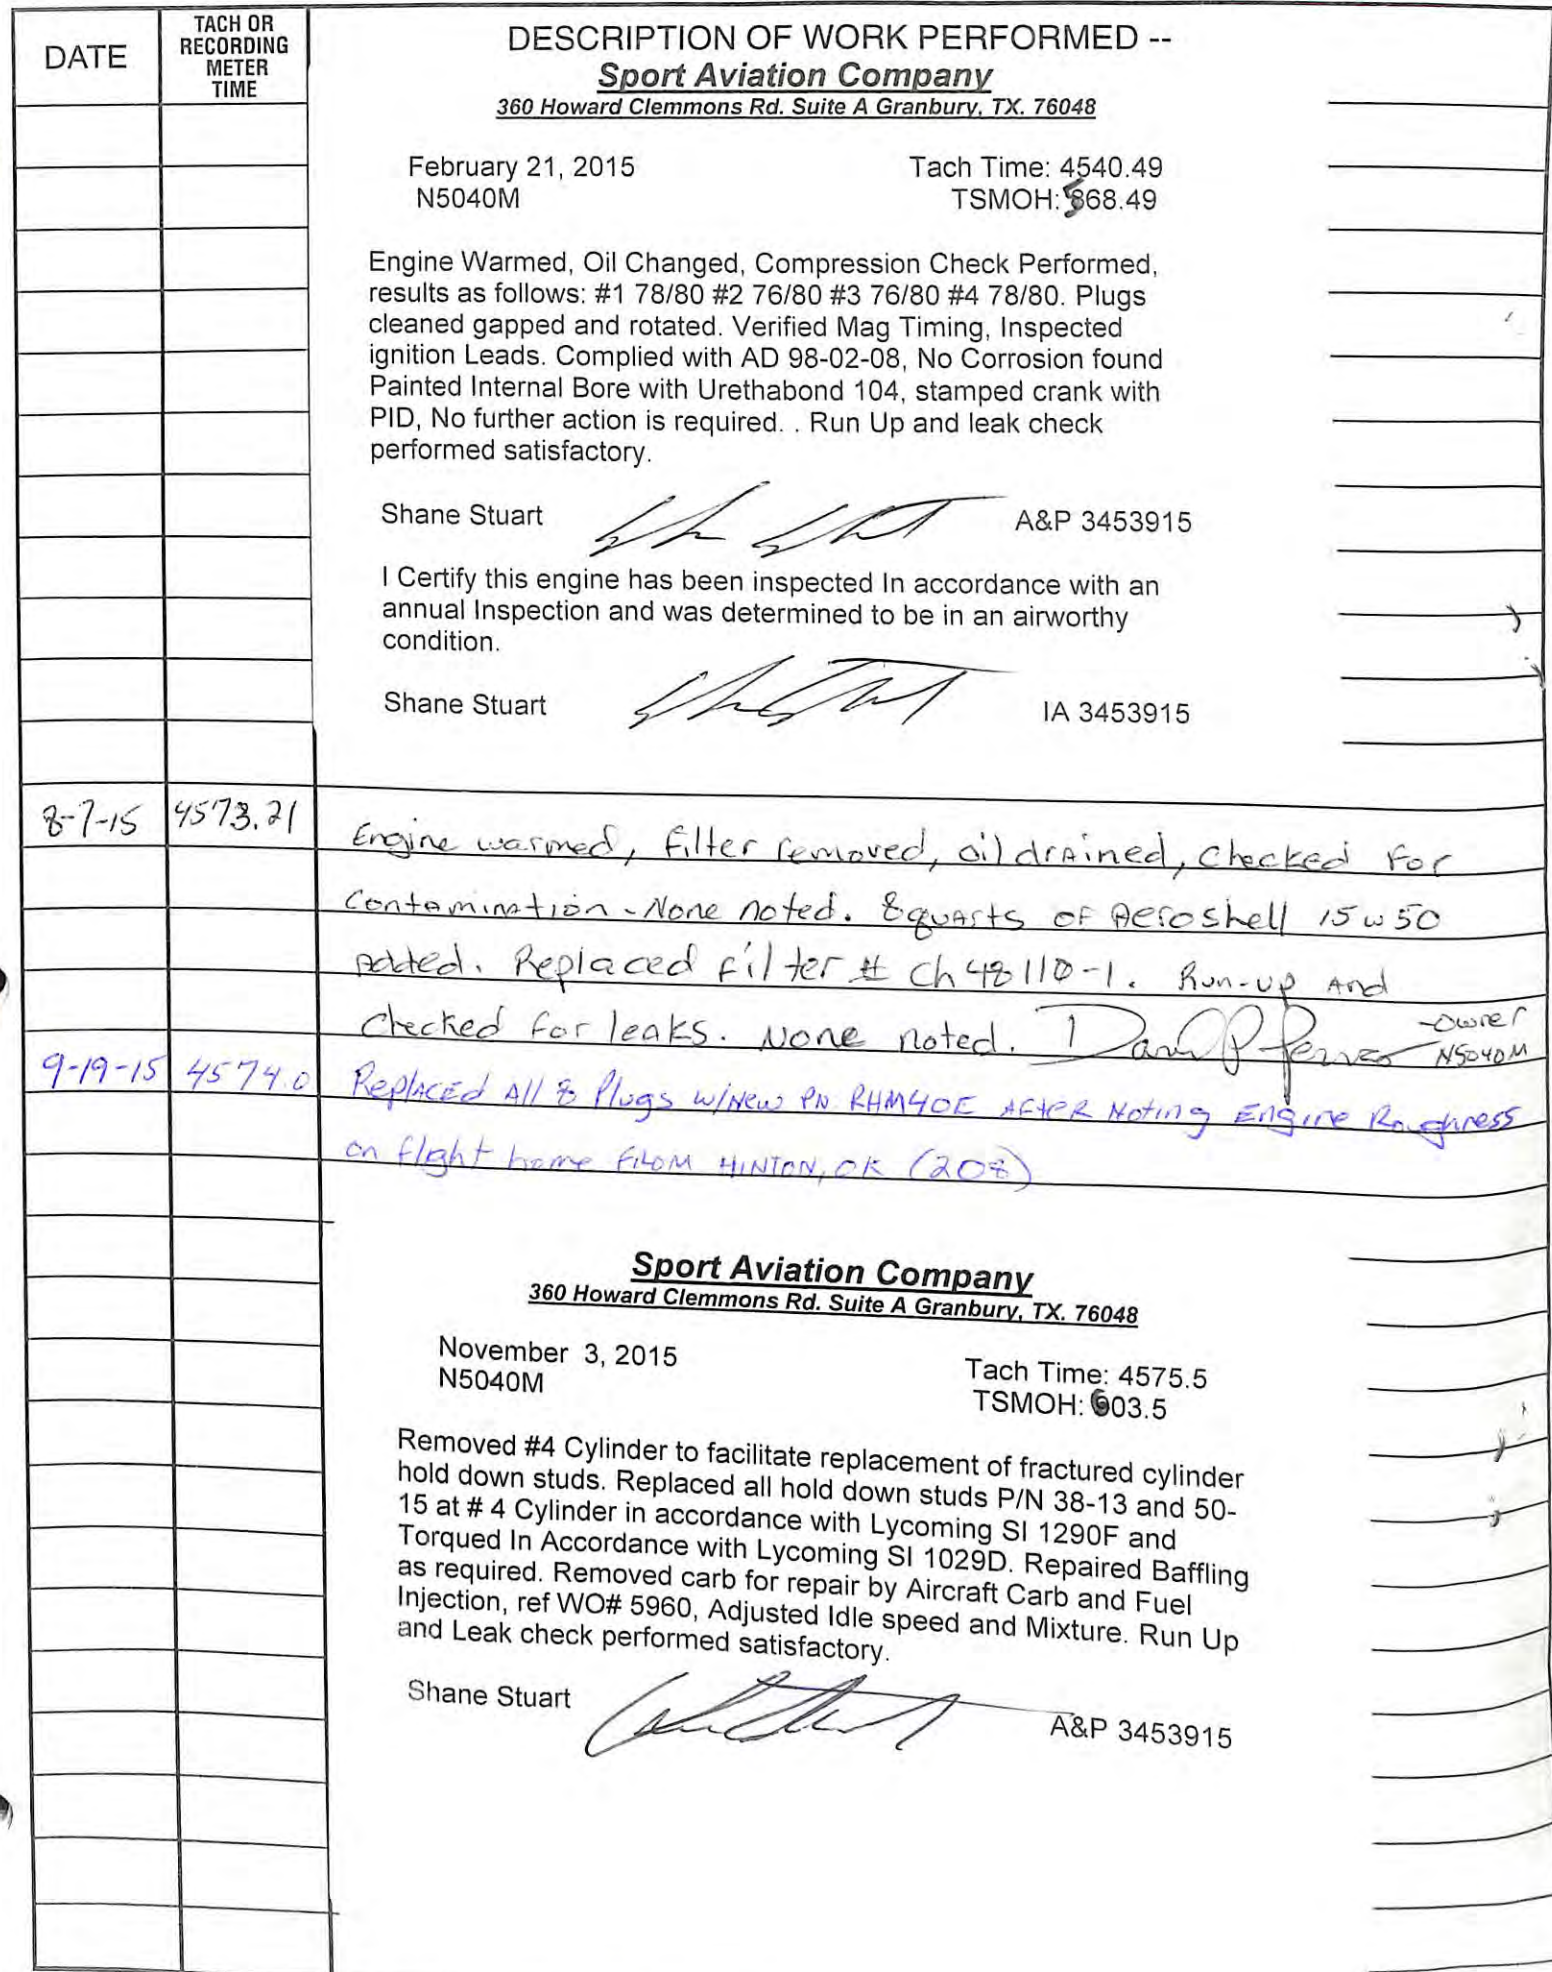 DATE
TACH OR
RECORDING
METER
TIME
DESCRIPTION OF WORK PERFORMED --
Sport Aviation Company
360 Howard Clemmons Rd. Suite A Granbury, TX. 76048
February 21, 2015 Tach Time: 4540.49
N5040M TSMOH: 568.49
Engine Warmed, Oil Changed, Compression Check Performed,
results as follows: #1 78/80 #2 76/80 #3 76/80 #4 78/80. Plugs
cleaned gapped and rotated. Verified Mag Timing, Inspected
ignition Leads. Complied with AD 98-02-08, No Corrosion found
Painted Internal Bore with Urethabond 104, stamped crank with
PID, No further action is required. . Run Up and leak check
performed satisfactory.
Shane Stuart A&P 3453915
I Certify this engine has been inspected In accordance with an
annual Inspection and was determined to be in an airworthy
condition.
Shane Stuart IA 3453915
8-7-15 4573.21 Engine warmed, filter removed, oil drained, checked for
contamination - None noted. 8 quarts of Aeroshell 15w50
added. Replaced filter # CH48110-1. Run-up and
checked for leaks. None noted. -owner
N5040M
9-19-15 4574.0 Replaced All 8 Plugs w/New PN RHM40E AFTER Noting Engine Roughness
on flight home FROM HINTON, OK (208)
Sport Aviation Company
360 Howard Clemmons Rd. Suite A Granbury, TX. 76048
November 3, 2015 Tach Time: 4575.5
N5040M TSMOH: 603.5
Removed #4 Cylinder to facilitate replacement of fractured cylinder
hold down studs. Replaced all hold down studs P/N 38-13 and 50-
15 at # 4 Cylinder in accordance with Lycoming SI 1290F and
Torqued In Accordance with Lycoming SI 1029D. Repaired Baffling
as required. Removed carb for repair by Aircraft Carb and Fuel
Injection, ref WO# 5960, Adjusted Idle speed and Mixture. Run Up
and Leak check performed satisfactory.
Shane Stuart A&P 3453915